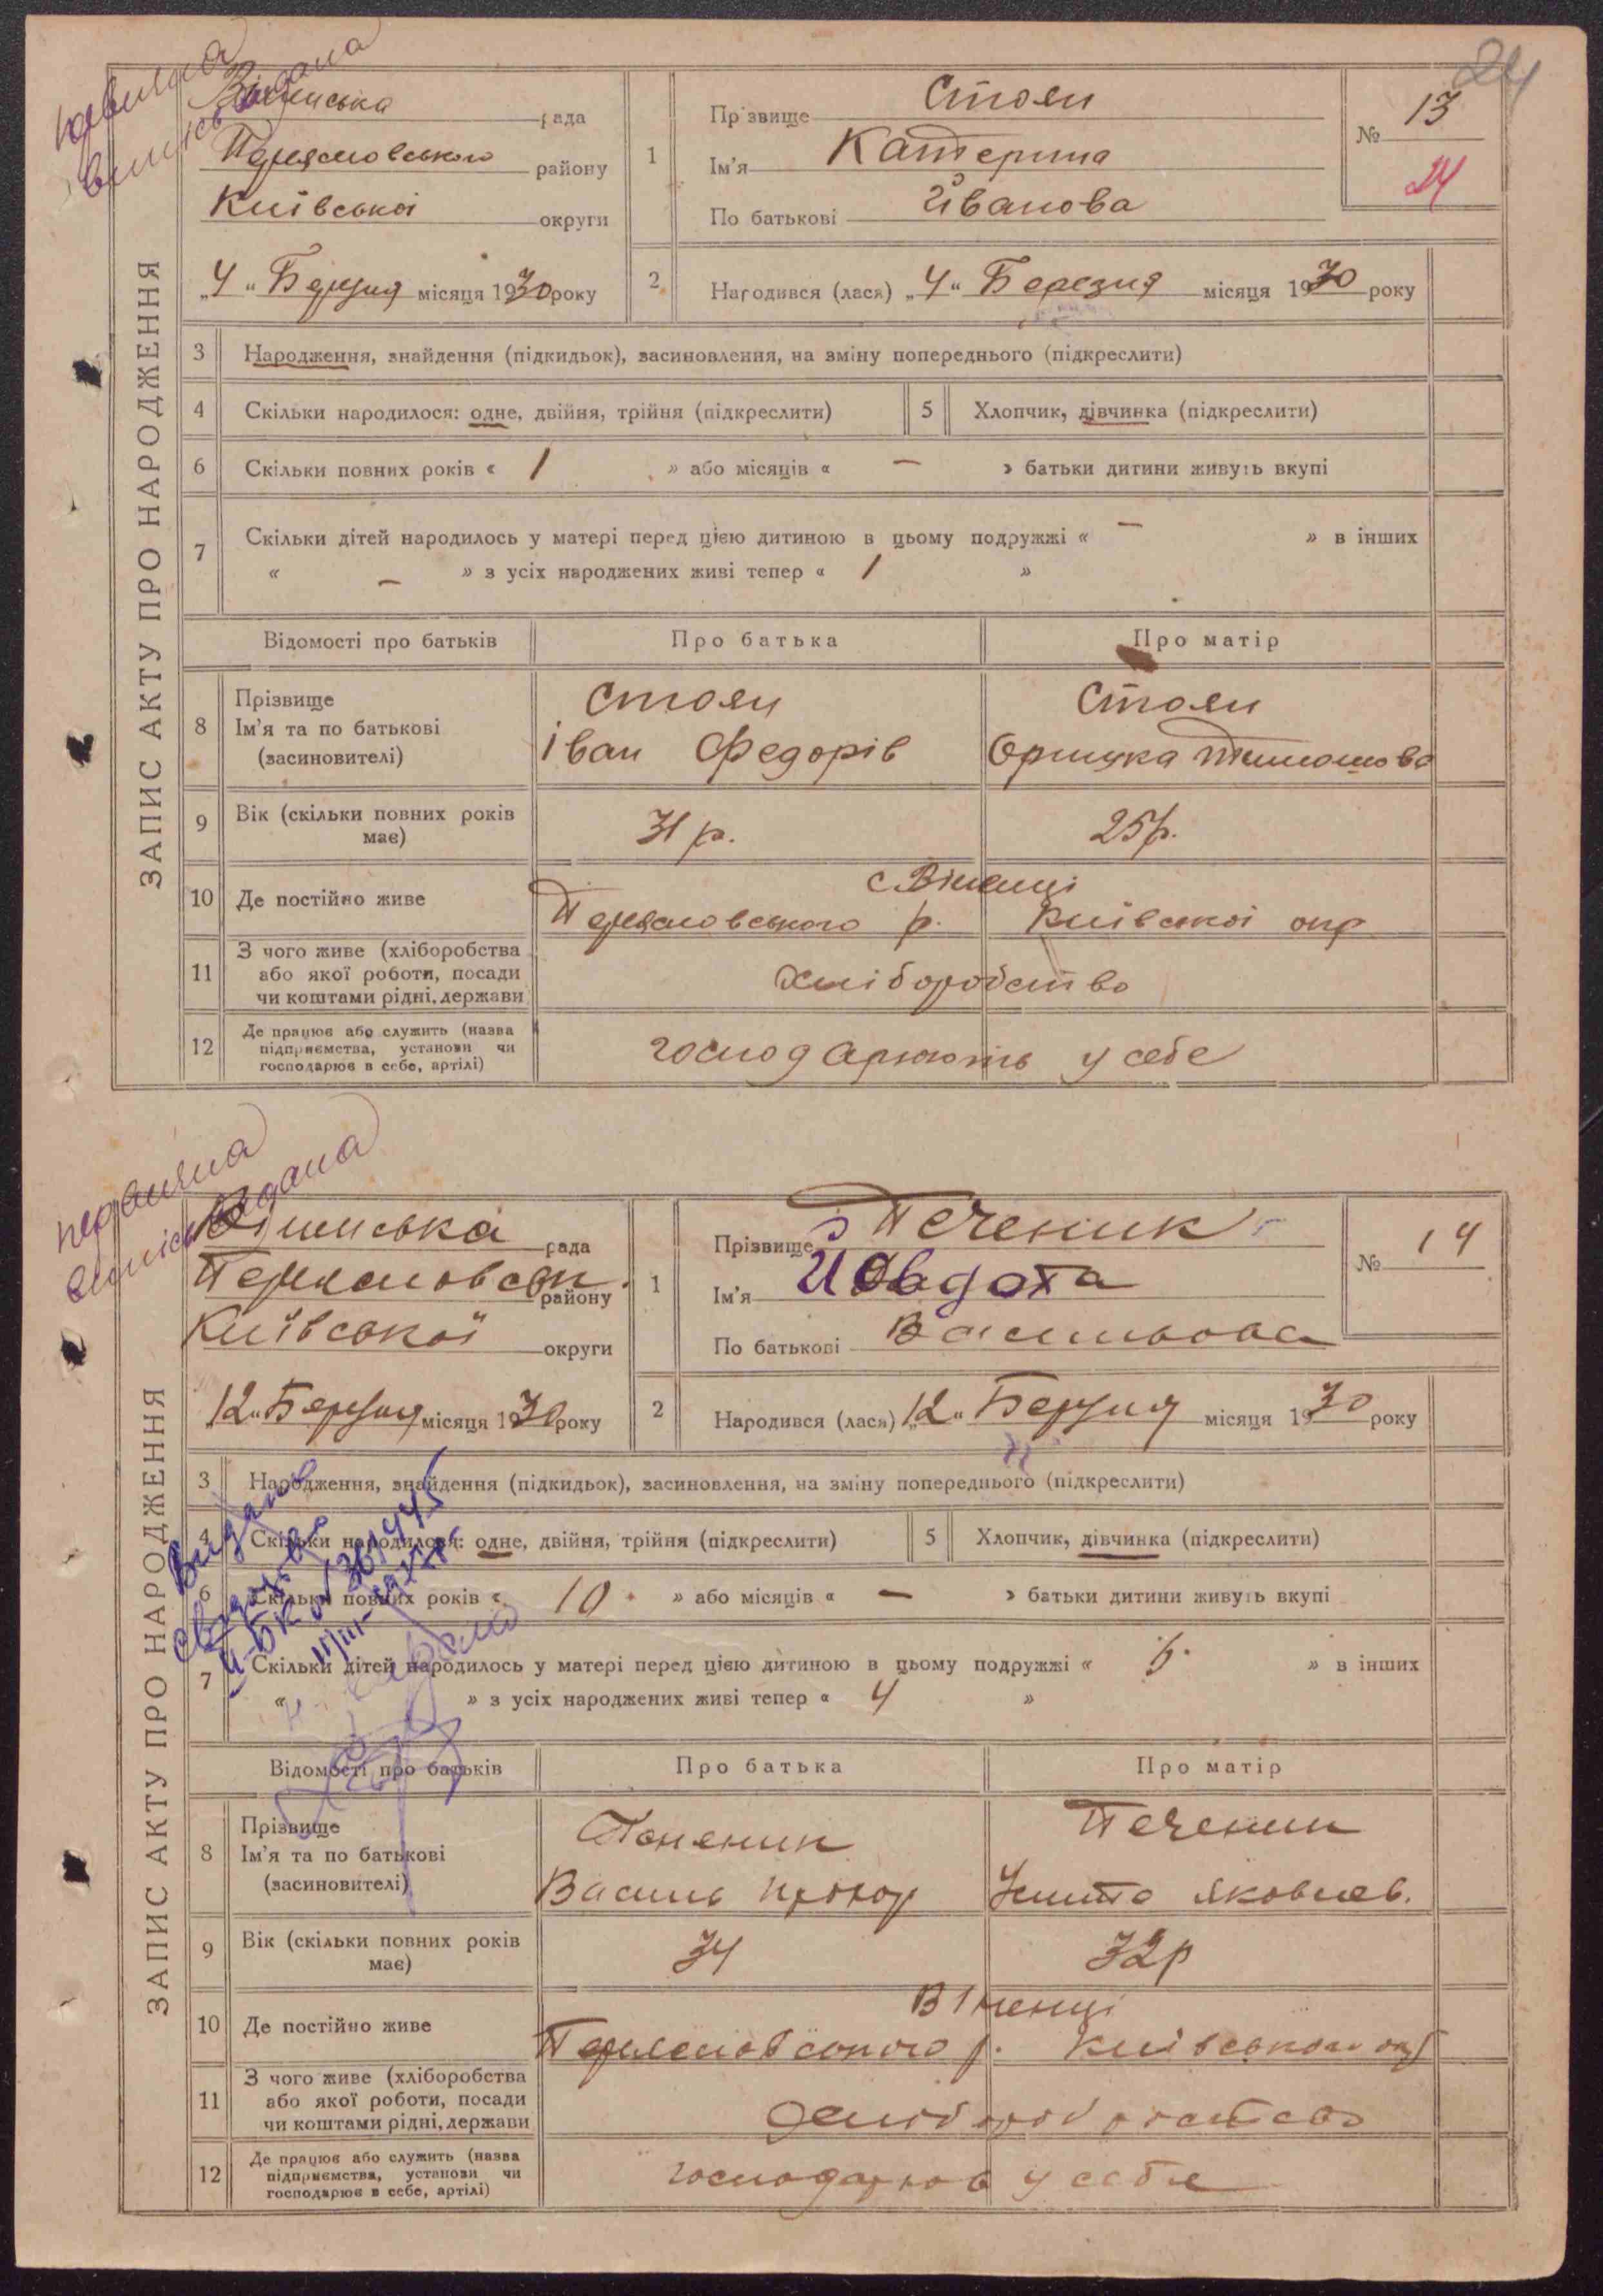 24
ЗАПИС АКТУ ПРО НАРОДЖЕННЯ
Віненська рада
Переяславського району
Київської округи
„4“ Березня місяця 1930 року
1
Прізвище Стоян
Ім'я Катерина
По батькові Іванова
№ 13
14
2 Народився (лася) „4“ Березня місяця 1930 року
3 Народження, знайдення (підкидьок), засиновлення, на зміну попереднього (підкреслити)
4 Скільки народилося: одне, двійня, трійня (підкреслити) 5 Хлопчик, дівчинка (підкреслити)
6 Скільки повних років « 1 » або місяців « – » батьки дитини живуть вкупі
7 Скільки дітей народилось у матері перед цією дитиною в цьому подружжі « – » в інших
« – » з усіх народжених живі тепер « 1 »
Відомості про батьків Про батька Про матір
8 Прізвище Стоян Стоян
Ім'я та по батькові Іван Федорів Оришка Тимошова
(засиновителі)
9 Вік (скільки повних років має) 31 р. 25 р.
10 Де постійно живе с. Віненці
Переяславського р. Київської окр
11 З чого живе (хліборобства
або якої роботи, посади хліборобство
чи коштами рідні, держави
12 Де працює або служить (назва
підприємства, установи чи господарюють у себе
господарює в себе, артілі)
ЗАПИС АКТУ ПРО НАРОДЖЕННЯ
рада
району
Київської округи
„12“ Березня місяця 1930 року
1
Прізвище Печеник
Ім'я Явдоха
По батькові Васильова
№ 14
2 Народився (лася) „12“ Березня місяця 1930 року
3 Народження, знайдення (підкидьок), засиновлення, на зміну попереднього (підкреслити)
4 Скільки народилося: одне, двійня, трійня (підкреслити) 5 Хлопчик, дівчинка (підкреслити)
6 Скільки повних років « 10 » або місяців « – » батьки дитини живуть вкупі
7 Скільки дітей народилось у матері перед цією дитиною в цьому подружжі « 5 » в інших
« » з усіх народжених живі тепер « 4 »
Відомості про батьків Про батька Про матір
8 Прізвище Печеник
Ім'я та по батькові Василь Яковлев.
(засиновителі)
9 Вік (скільки повних років має) 34 32р
10 Де постійно живе Віненці
р.
11 З чого живе (хліборобства
або якої роботи, посади
чи коштами рідні, держави
12 Де працює або служить (назва
підприємства, установи чи у себе
господарює в себе, артілі)